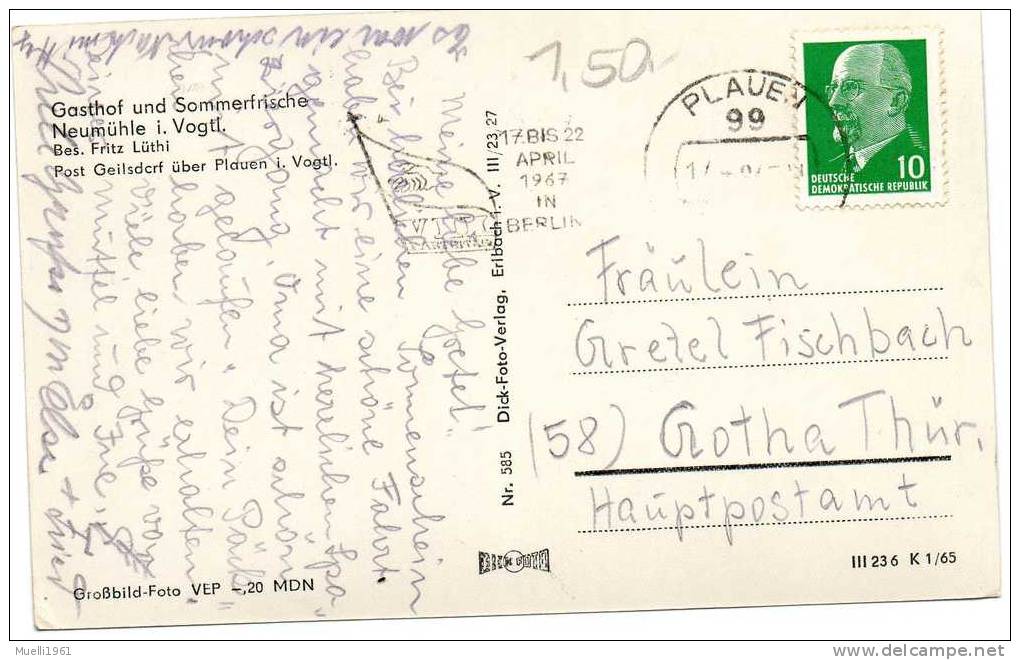 1,50.-
Gasthof und Sommerfrische
Neumühle i. Vogtl.
Bes. Fritz Lüthi
Post Geilsdorf über Plauen i. Vogtl.
Meine liebe Gretel!
Bei herrlichem Sonnenschein
haben wir eine schöne Fahrt
gemacht mit herrlichen Spa
ziergang, Oma ist schön
mit gelaufen. Dein Päck
chen haben wir erhalten.
Viele liebe Grüße von
mutti und
Es war ein schöner
Nr. 585 Dick-Foto-Verlag, Erlbach i. V. III/23/27
17. BIS 22
APRIL
1967
IN
BERLIN
VII.
PLAUEN
99
10
DEUTSCHE
DEMOKRATISCHE REPUBLIK
Fräulein
Gretel Fischbach
(58) Gotha Thür.
Hauptpostamt
DICK FOTO
III 23 6 K 1/65
Großbild-Foto VEP -,20 MDN
Muelli1961
delcampe.net